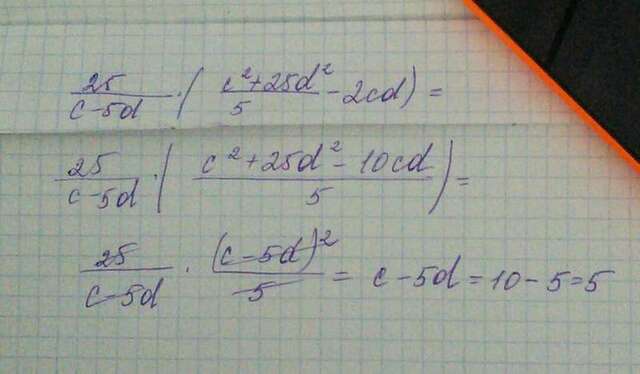 25/(c-5d) · ( (c²+25d²)/5 - 2cd) =
25/(c-5d) · ( (c²+25d²-10cd)/5 ) =
25/(c-5d) · (c-5d)²/5 = c-5d = 10-5=5